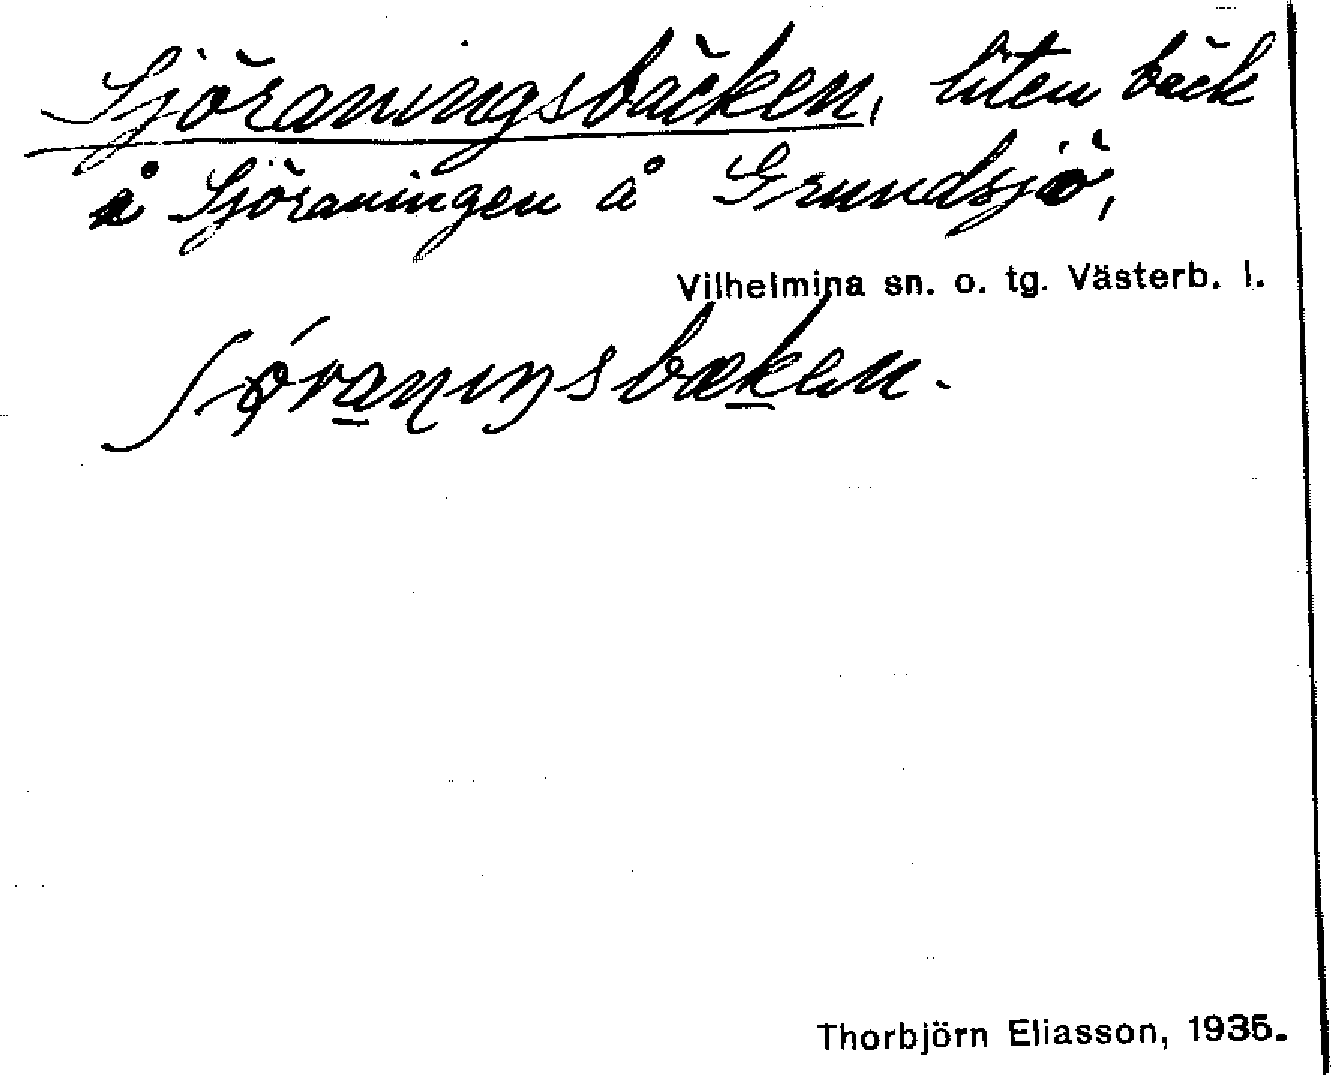 Sjöraningsbäcken, liten bäck
å Sjöraningen å Grundsjö,
Vilhelmina sn. o. tg. Västerb. l.
ʃǿra̲ŋıŋsbæk̲en.
Thorbjörn Eliasson, 1935.